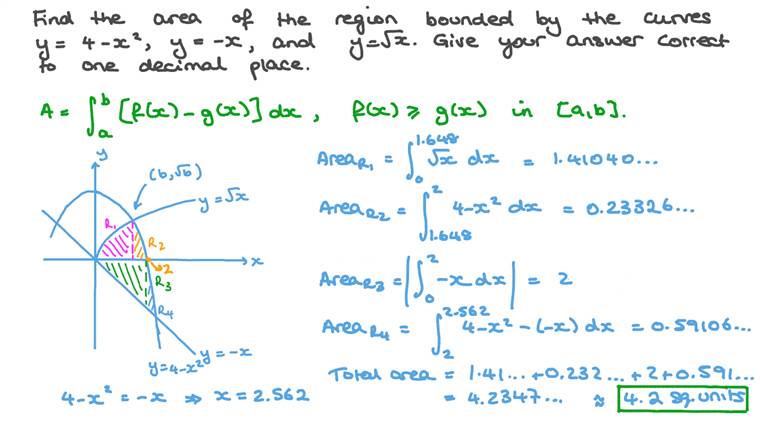 Find the area of the region bounded by the curves
y = 4-x², y = -x, and y=√x. Give your answer correct
to one decimal place.
A = ∫ₐᵇ [f(x) - g(x)] dx, f(x) ⩾ g(x) in [a,b].
y
(b,√b)
y=√x
R₁
R₂
x
2
R₃
R₄
y=4-x²
y=-x
4-x² = -x ⇒ x = 2.562
Area_R₁ = ∫₀^1.648 √x dx = 1.41040...
Area_R₂ = ∫_1.648^2 4-x² dx = 0.23326...
Area_R₃ = |∫₀² -x dx| = 2
Area_R₄ = ∫₂^2.562 4-x² - (-x) dx = 0.59106...
Total area = 1.41... + 0.232... + 2 + 0.591...
= 4.2347... ≈ 4.2 sq. units